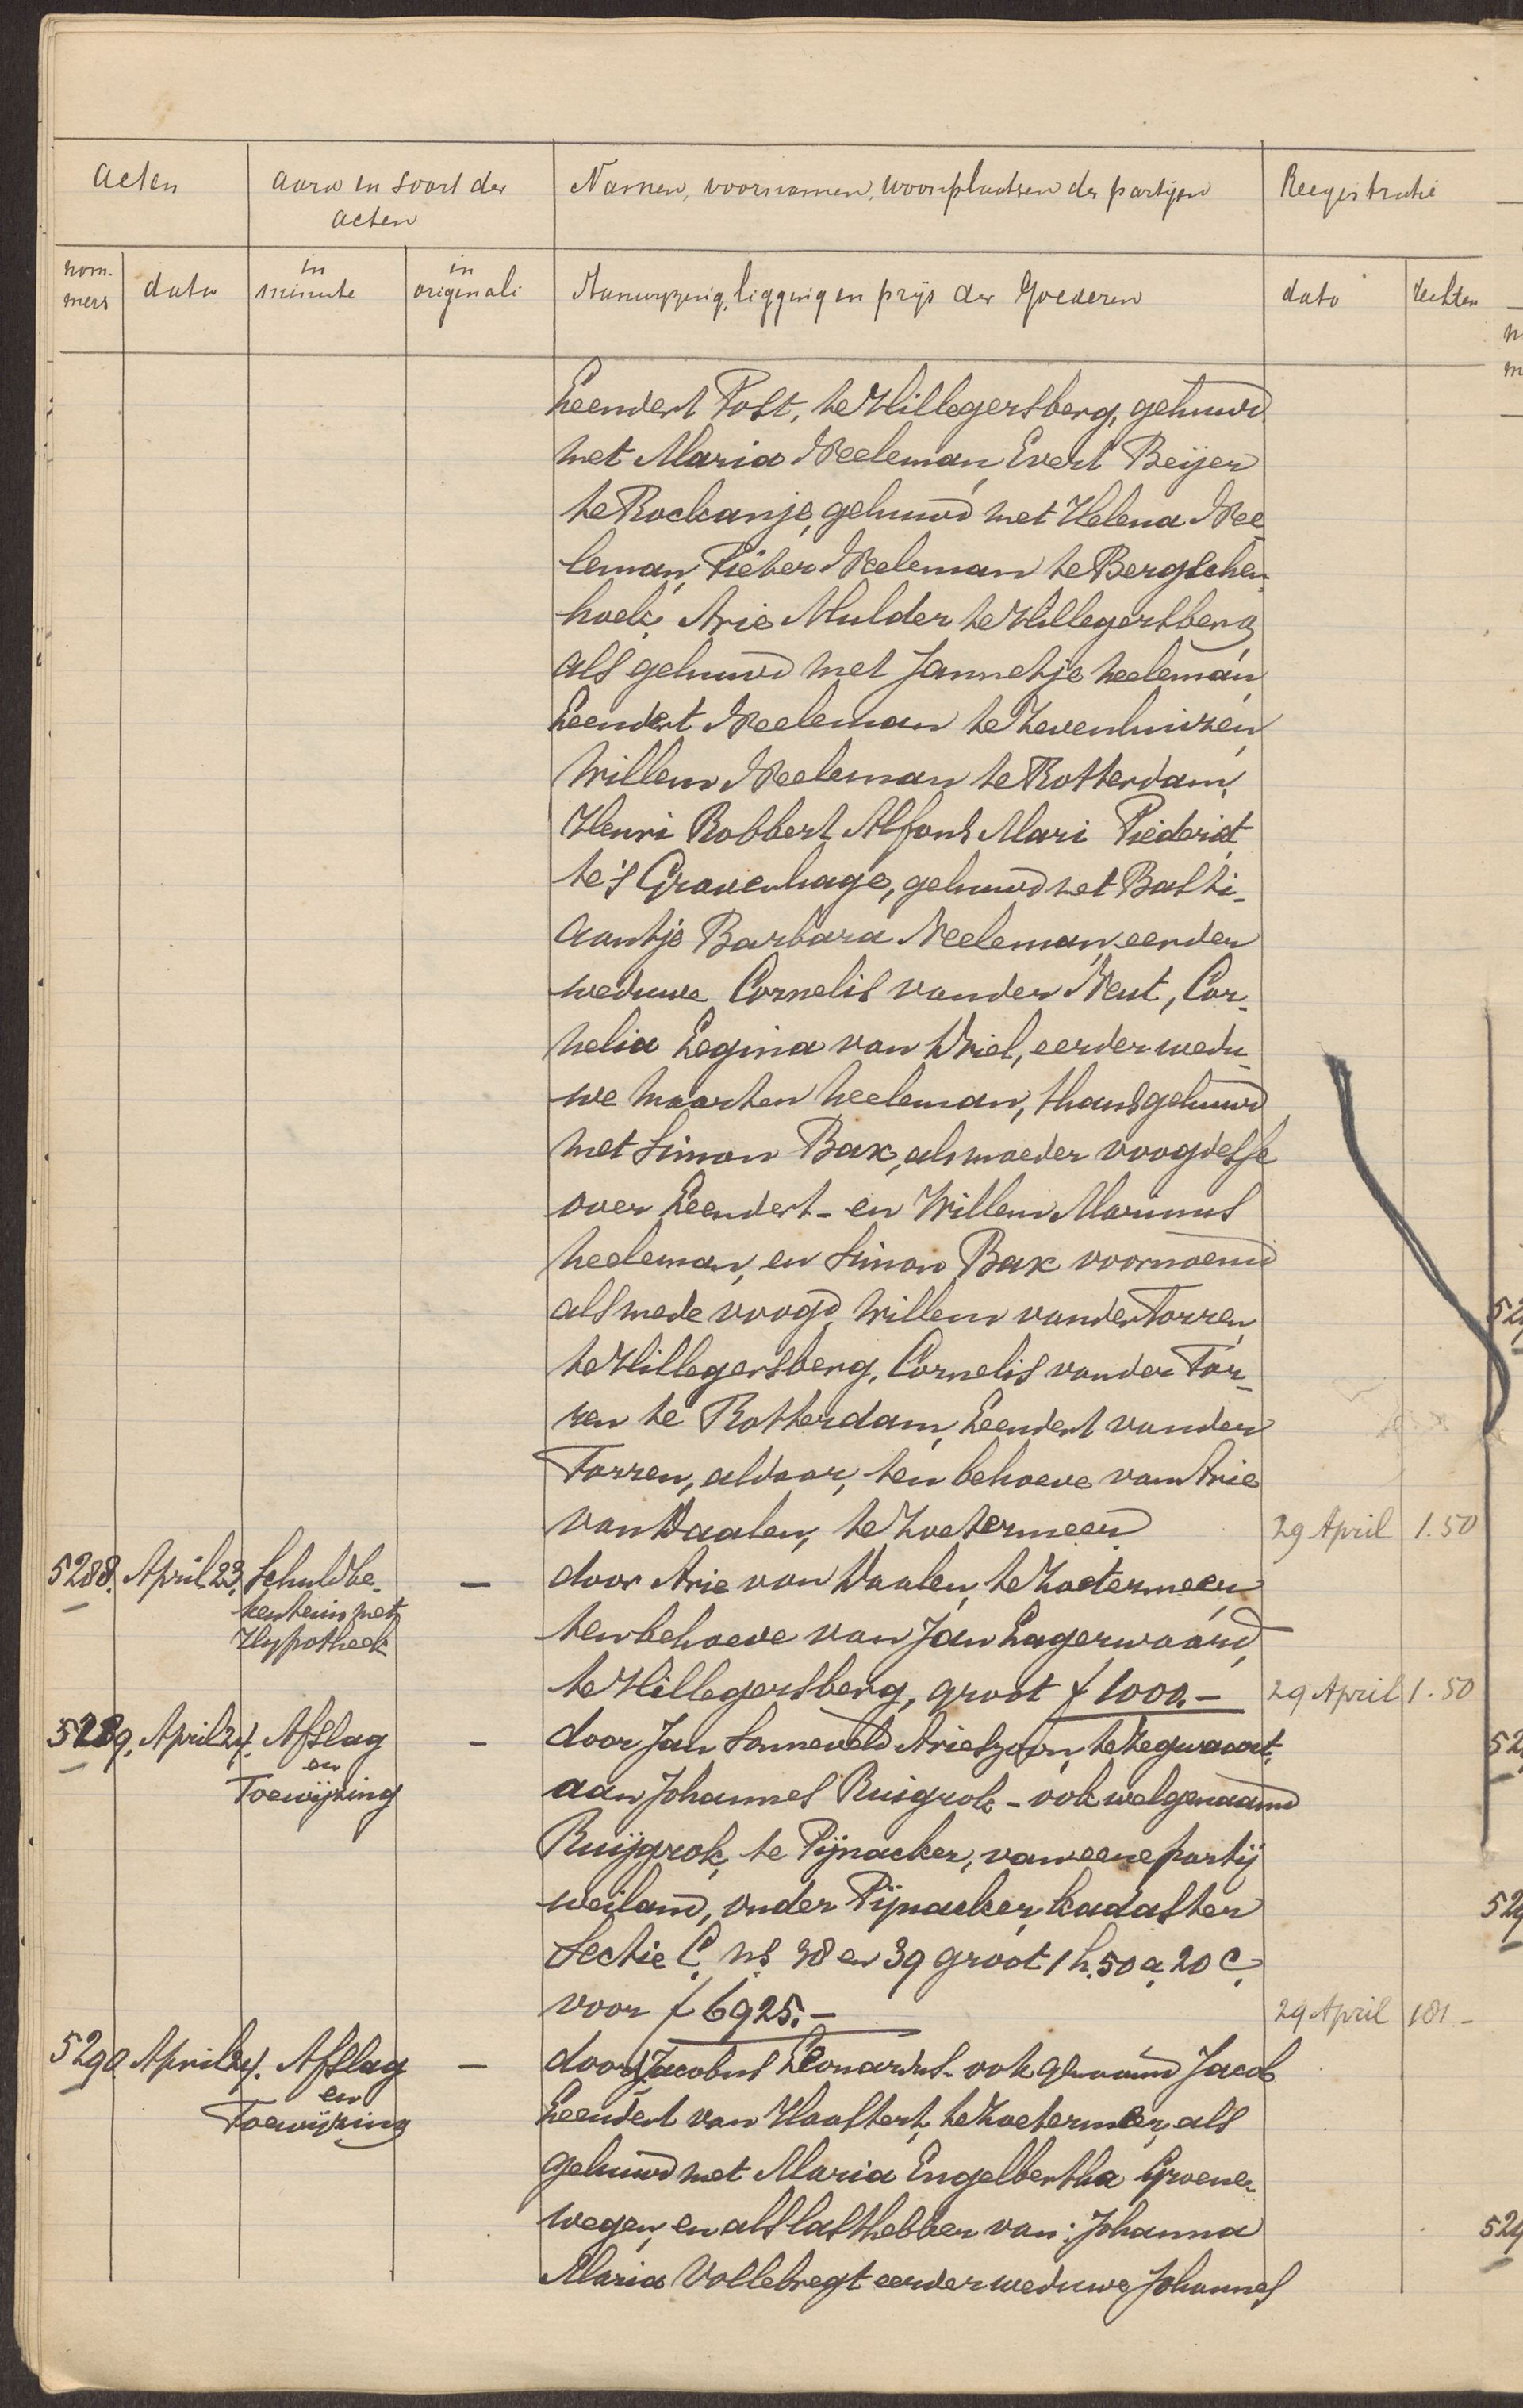 Acten
aard en soort der
acten
Namen, voornamen, woonplaatsen der partijen
Reegistratie
nom-
mers
dato
in
minute
in
originali
Aanwijzing, ligging en prijs der Goederen
dato
rechten
Leendert Post, te Hillegersberg, gehuwd
met Maria Neeleman, Evert Beijer
te Rockanje, gehuwd met Helena Nee-
leman, Pieter Neeleman te Bergschen-
hoek, Arie Mulder te Hillegersberg
als gehuwd met Jannetje Neeleman,
Leendert Neeleman te Zevenhuizen,
Willem Neeleman te Rotterdam,
Henri Robbert Alfons Mari Piederiet
te 's Gravenhage, gehuwd met Basti-
aantje Barbara Neeleman, eerder
weduwe Cornelis van der Neut, Cor-
nelia Legina van Driel, eerder wedu-
we Maarten Neeleman, thans gehuwd
met Simon Bax, als moeder voogdesse
over Leendert - en Willem Marinus
Neeleman, en Simon Bax voornoemd
als mede voogd, Willem van der Torren,
te Hillegersberg, Cornelis van der Tor-
ren te Rotterdam, Leendert van der
Torren, aldaar, ten behoeve van Arie
van Daalen, te Zoetermeer. 29 April 1.50
5288. April 23. Schuldbe- — door Arie van Daalen, te Zoetermeer,
kentenis met
Hypotheek
ten behoeve van Jan Lagerwaard,
te Hillegersberg, groot f 1000.- 29 April 1.50
5289. April 24. Afslag - door Jan Sonneveld Arieszoon, te Zegwaart,
en
Toewijzing
aan Johannes Ruigrok - ook wel genaamd
Ruijgrok, te Pijnacker, van eene partij
weiland, onder Pijnacker, kadaster
Sectie C. ns. 38 en 39 groot 1 h. 50 a. 20 c.
voor f 6925.- 29 April 101.-
5290 April 24. Afslag — door Jacobus Leonardus - ook genaamd Jacob
en
Toewijzing
Leendert van Haastert, te Zoetermeer, als
gehuwd met Maria Engelbertha Groene-
wegen, en als lasthebber van: Johanna
Maria Vollebregt eerder weduwe Johannes